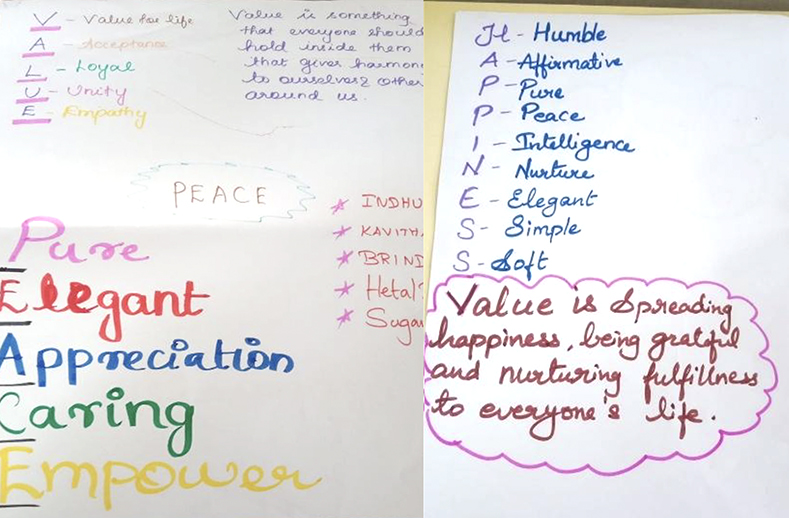 V - Value for life
A - Acceptance
L - Loyal
U - Unity
E - Empathy
Value is something
that everyone should
hold inside them
that gives harmony
to ourselves & other
around us.
PEACE
INDHU
KAVITH
BRIND
Hetal
Sugan
Pure
Elegant
Appreciation
Caring
Empower
H - Humble
A - Affirmative
P - Pure
P - Peace
I - Intelligence
N - Nurture
E - Elegant
S - Simple
S - Soft
Value is Spreading
happiness, being grateful
and nurturing fulfillness
to everyone's life.